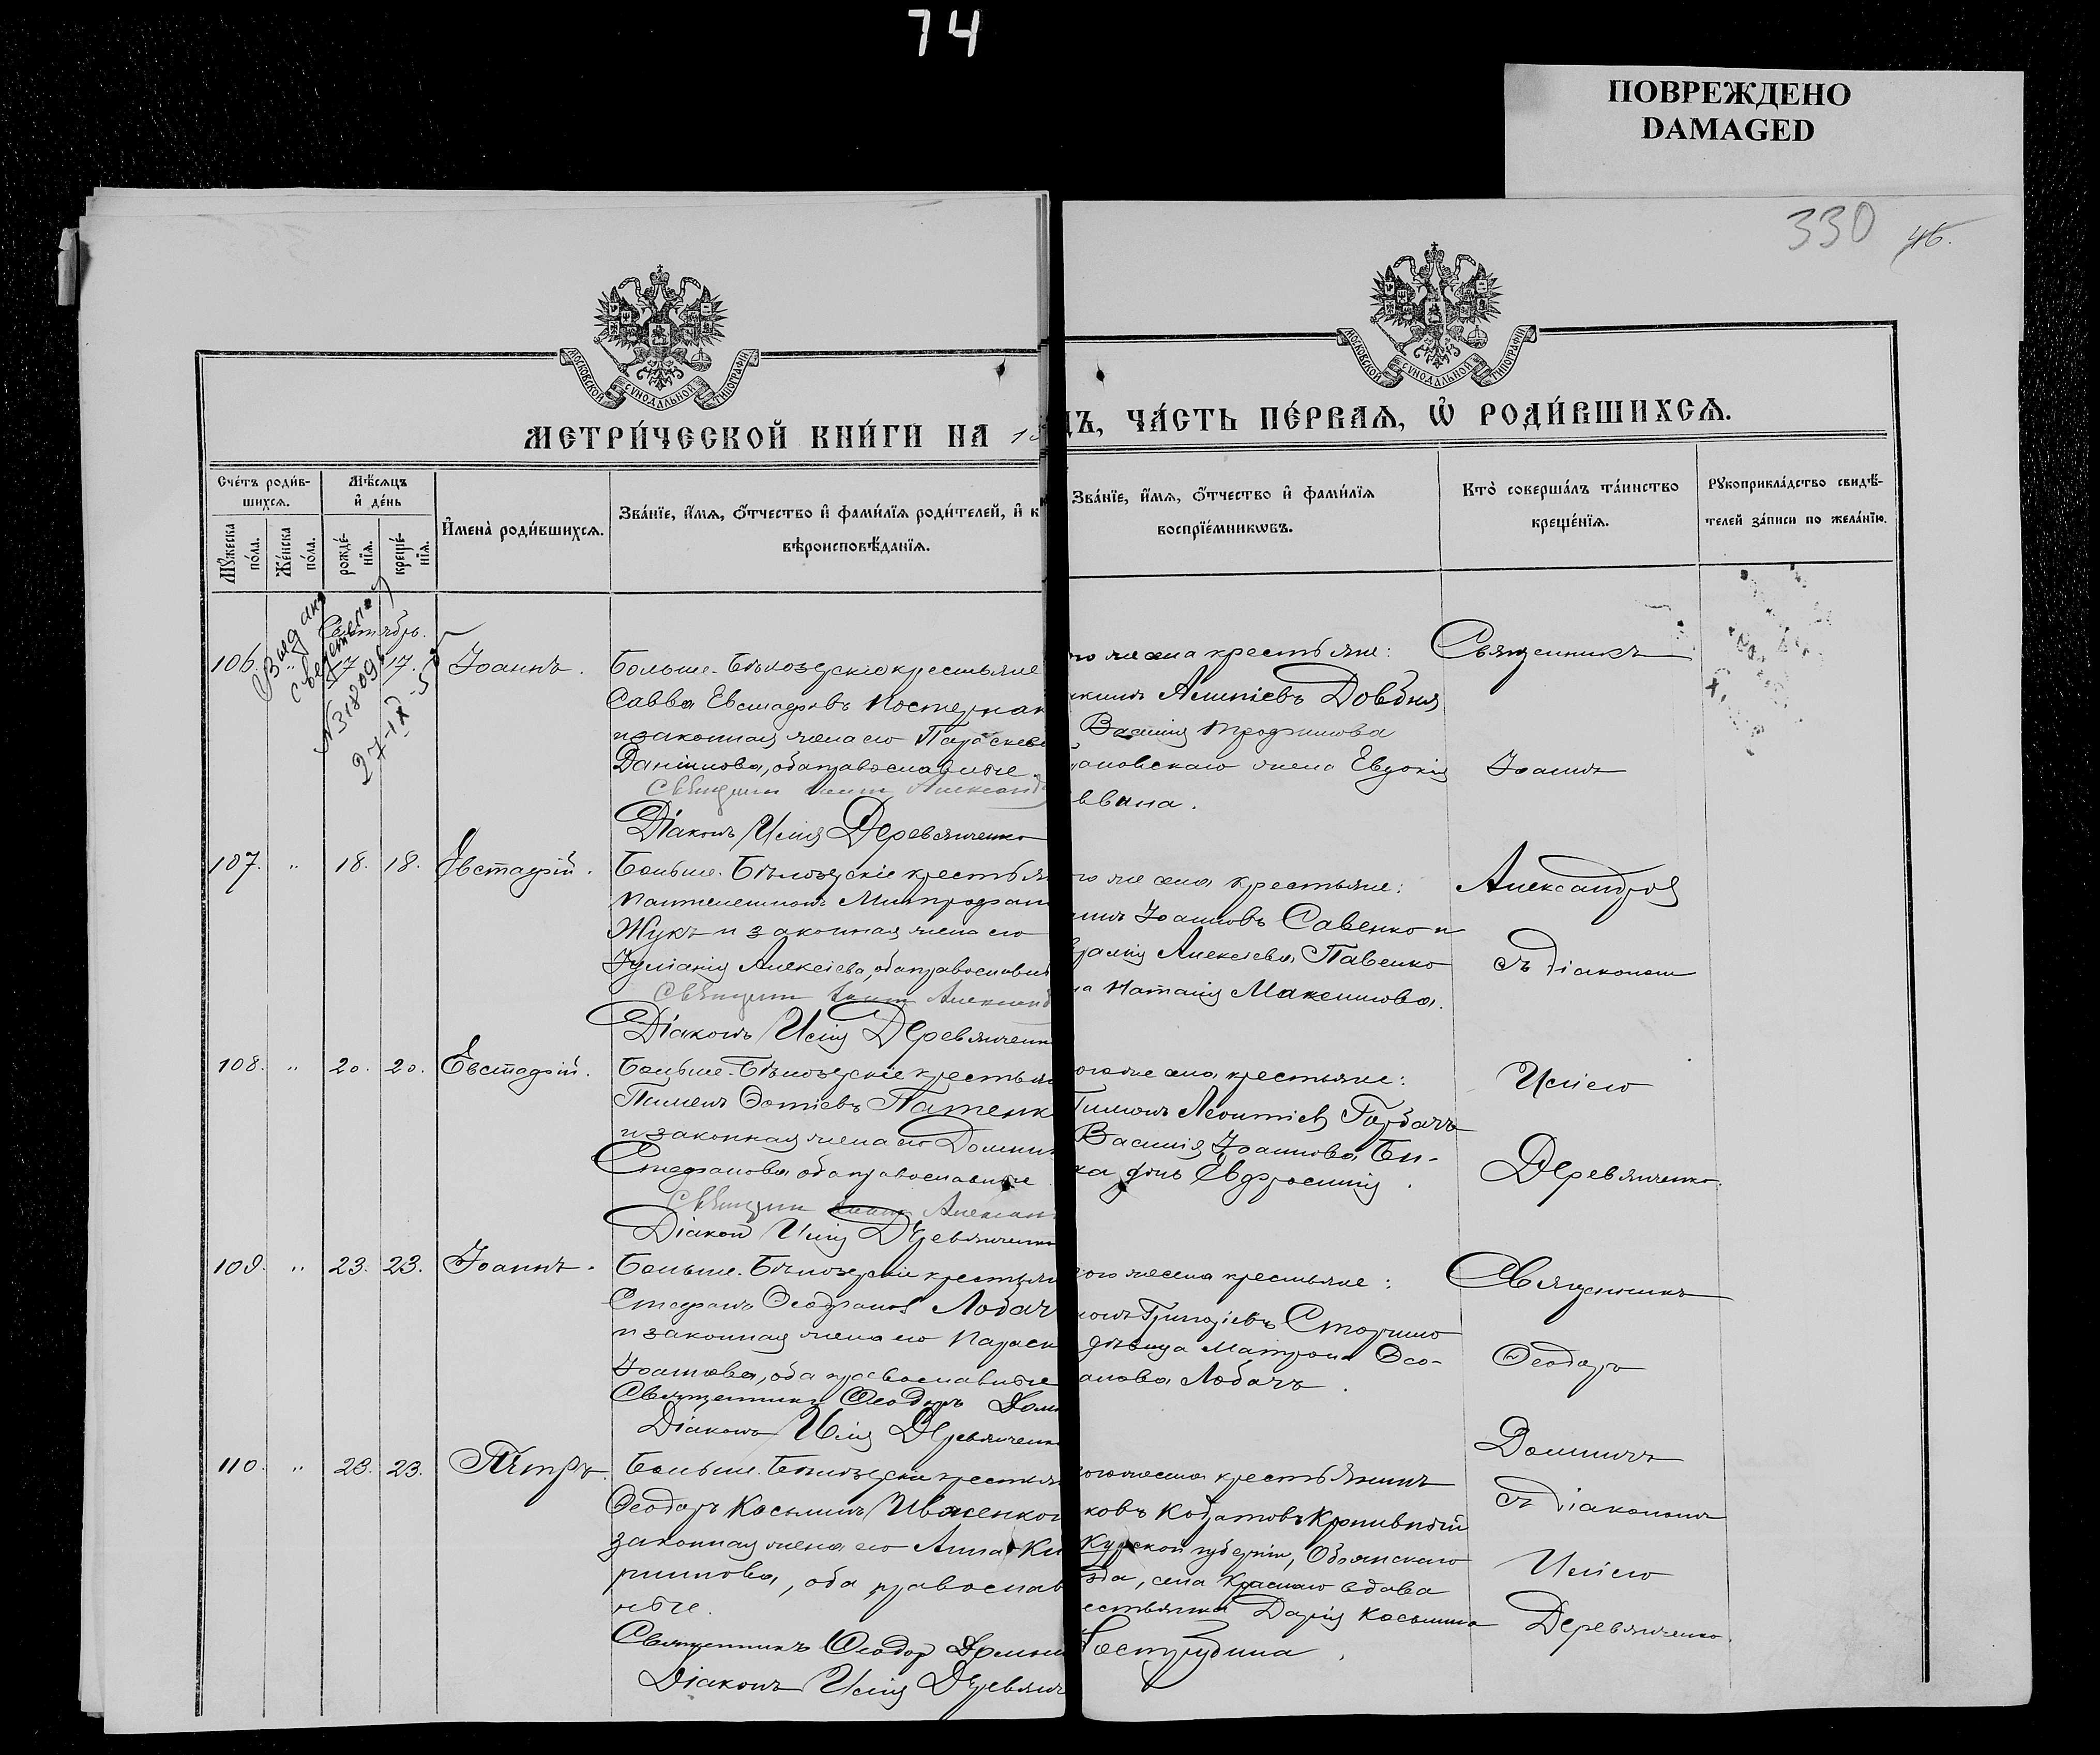 74
ПОВРЕЖДЕНО
DAMAGED
330
46.
МОСКОВСКОЙ СѴНОДАЛЬНОЙ ТИПОГРАФІИ
МОСКОВСКОЙ СѴНОДАЛЬНОЙ ТИПОГРАФІИ
МЕТРИ́ЧЕСКОЙ КНИ́ГИ НА 18
ДЪ, ЧА́СТЬ ПЕ́РВАѦ, Ѡ҆ РОДИ́ВШИХСѦ.
Сче́тъ роди́в-
шихсѧ.
Мꙋ́жеска по́ла.
Же́нска по́ла.
Мѣ́сѧцъ
и҆ де́нь
рожде́-
нїѧ.
креще́-
нїѧ.
И҆мена̀ роди́вшихсѧ.
Зва́нїе, и҆́мѧ, ѻ҆́тчество и҆ фами́лїѧ роди́телей, и҆ к
вѣроисповѣ́данїѧ.
Зва́нїе, и҆́мѧ, ѻ҆́тчество и҆ фами́лїѧ
воспрїе́мникѡвъ.
Кто̀ соверша́лъ та́инство
креще́нїѧ.
Рꙋкоприкла́дство свидѣ́-
телей за́писи по жела́нїю.
Сентябрь.
Выдано
№318096
27-IX-5
106. " 17 17. Іоаннъ.
Больше-Бѣлозерскіе крестьяне
Савва Евстафіевъ Костернак
и законная жена его Параскева
Даніилова, оба православные.
Діаконъ Илія Деревянченко
го же села крестьяне:
Алипіевъ Довбня
Василія Трофимова
жена Евдокія
ввина.
Священникъ
Іоаннъ
107. " 18. 18. Евстафій.
Больше-Бѣлозерскіе крестьян
Пантелеимонъ Митрофан
Жукъ и законная жена его
Іуліанія Алексіева, оба православн
Діаконъ Илія Деревянченк
го же села крестьяне:
Іоанновъ Савенко и
Алексіева Павенко
на Наталія Максимова.
Александровъ
съ діакономъ
108. " 20. 20. Евстафій.
Больше-Бѣлозерскіе крестьян
Пименъ Фотіевъ Патенк
и законная жена его Домник
Стефанова, оба православные
Діаконъ Илія Деревянченко
ого же села крестьяне:
Тимонъ Леонтіев Горбачъ
Василія Іоаннова Би-
ка дочь Евфросинія.
Иліею
Деревянченко.
109. " 23. 23. Іоаннъ.
Больше-Бѣлозерскіе крестьян
Стефанъ Ѳеофанов Лобач
и законная жена его Параск
Іоаннова, оба православные
Священникъ Ѳеодоръ Доми
Діаконъ Илія Деревянченк
ого же села крестьяне:
Григоріевъ
дѣвица Матрона Ѳео-
анова Лобачъ.
Священникъ
Ѳеодоръ
Доминичъ
110. " 23. 23. Пётръ.
Больше-Бѣлозерскіе крестьян
Ѳеодоръ Косьминъ Ивженко и
законная жена его Анна Ки
риллова, оба православ
ные.
Священникъ Ѳеодор Домин
Діаконъ Илія Деревянч
ого же села крестьянинъ
ковъ Кодратовъ Кропивный
Курской губерніи, Обоянскаго
зда, села Краснаго вдова
естьянка Дарія Косьмина
съ діакономъ
Иліею
Деревянченко.